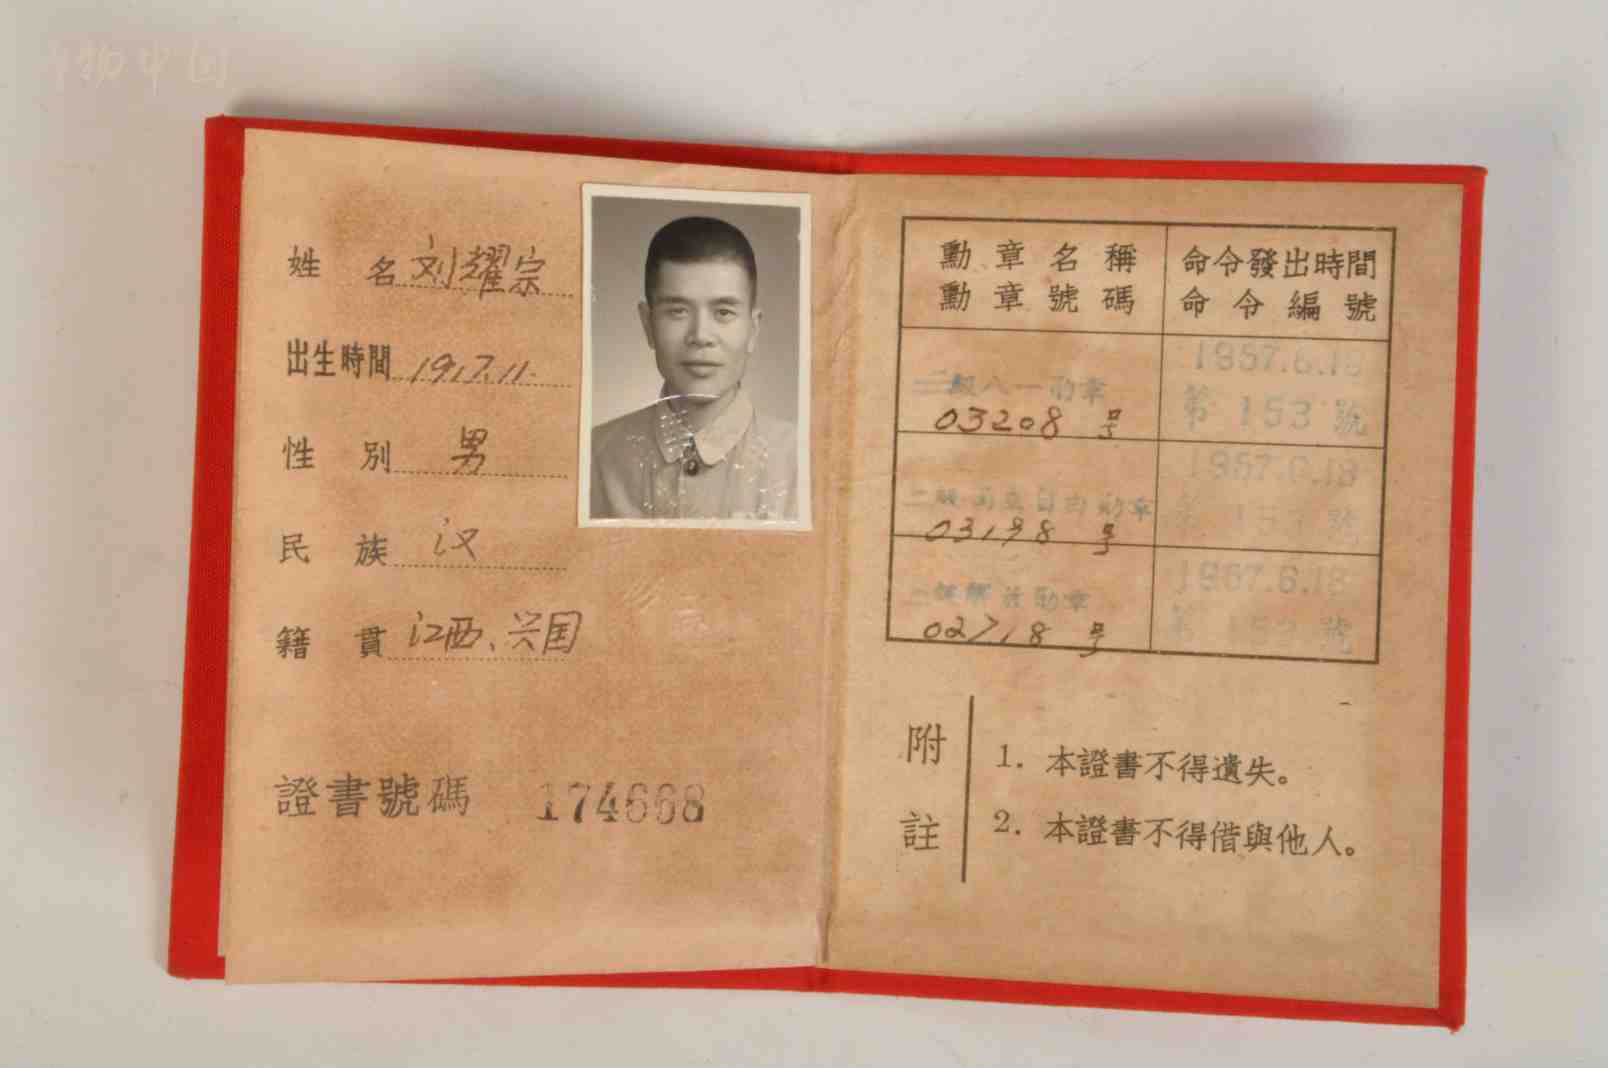 物中国
姓 名 刘耀宗
出生時間 1917.11.
性 別 男
民 族 汉
籍 貫 江西、兴国
證書號碼 174668
勳章名稱
勳章號碼
命令發出時間
命令編號
二級八一勋章
03208 号
1957.6.18
第 153 號
二級 自由勋章
03198 号
1957.6.18
第 153 號
二級解放勋章
02718 号
1957.6.18
第 153 號
附註
1. 本證書不得遺失。
2. 本證書不得借與他人。